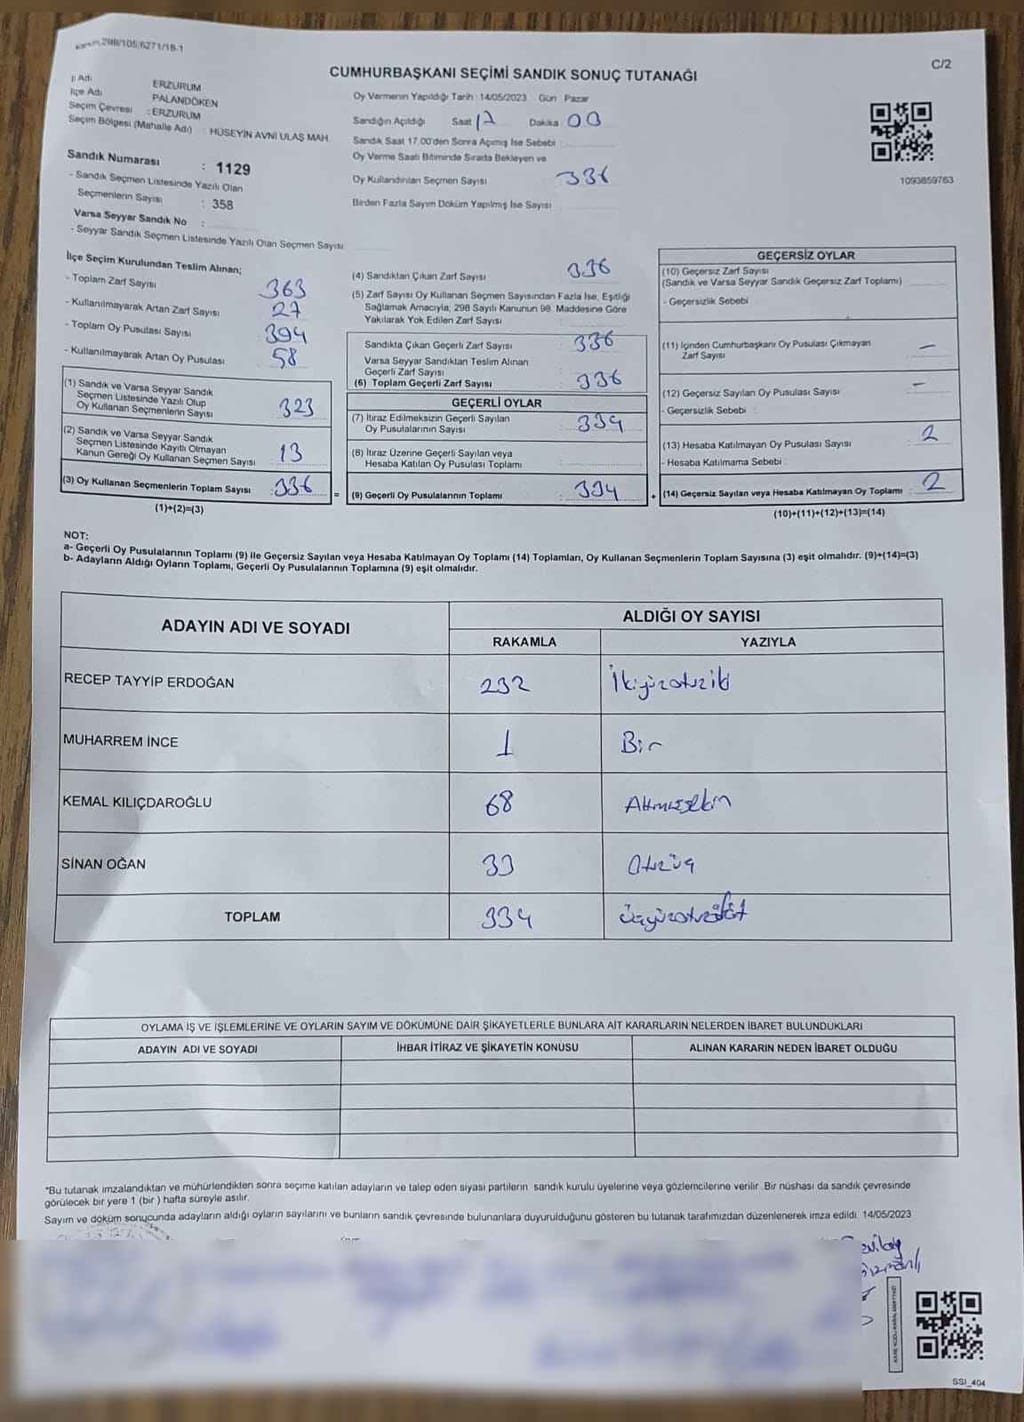 298/105/6271/18-1
C/2
CUMHURBAŞKANI SEÇİMİ SANDIK SONUÇ TUTANAĞI
İl Adı ERZURUM
İlçe Adı PALANDÖKEN
Seçim Çevresi : ERZURUM
Seçim Bölgesi (Mahalle Adı) : HÜSEYİN AVNİ ULAŞ MAH.
Sandık Numarası : 1129
- Sandık Seçmen Listesinde Yazılı Olan
Seçmenlerin Sayısı : 358
Varsa Seyyar Sandık No :
- Seyyar Sandık Seçmen Listesinde Yazılı Olan Seçmen Sayısı
Oy Vermenin Yapıldığı Tarih : 14/05/2023 Gün Pazar
Sandığın Açıldığı Saat 17 Dakika 00
Sandık Saat 17.00'den Sonra Açımış İse Sebebi
Oy Verme Saati Bitiminde Sırada Bekleyen ve
Oy Kullandırılan Seçmen Sayısı 336
Birden Fazla Sayım Döküm Yapılmış İse Sayısı
1093859763
İlçe Seçim Kurulundan Teslim Alınan;
- Toplam Zarf Sayısı 363
- Kullanılmayarak Artan Zarf Sayısı 27
- Toplam Oy Pusulası Sayısı 394
- Kullanılmayarak Artan Oy Pusulası 58
(1) Sandık ve Varsa Seyyar Sandık
Seçmen Listesinde Yazılı Olup
Oy Kullanan Seçmenlerin Sayısı 323
(2) Sandık ve Varsa Seyyar Sandık
Seçmen Listesinde Kayıtlı Olmayan
Kanun Gereği Oy Kullanan Seçmen Sayısı 13
(3) Oy Kullanan Seçmenlerin Toplam Sayısı : 336 =
(1)+(2)=(3)
(4) Sandıktan Çıkan Zarf Sayısı 336
(5) Zarf Sayısı Oy Kullanan Seçmen Sayısından Fazla İse, Eşitliği
Sağlamak Amacıyla, 298 Sayılı Kanunun 98. Maddesine Göre
Yakılarak Yok Edilen Zarf Sayısı
Sandıkta Çıkan Geçerli Zarf Sayısı 336
Varsa Seyyar Sandıktan Teslim Alınan
Geçerli Zarf Sayısı
(6) Toplam Geçerli Zarf Sayısı 336
GEÇERLİ OYLAR
(7) İtiraz Edilmeksizin Geçerli Sayılan
Oy Pusulalarının Sayısı : 334
(8) İtiraz Üzerine Geçerli Sayılan veya
Hesaba Katılan Oy Pusulası Toplamı
(9) Geçerli Oy Pusulalarının Toplamı 334 +
GEÇERSİZ OYLAR
(10) Geçersiz Zarf Sayısı
(Sandık ve Varsa Seyyar Sandık Geçersiz Zarf Toplamı)
- Geçersizlik Sebebi
(11) İçinden Cumhurbaşkanı Oy Pusulası Çıkmayan
Zarf Sayısı –
(12) Geçersiz Sayılan Oy Pusulası Sayısı –
- Geçersizlik Sebebi :
(13) Hesaba Katılmayan Oy Pusulası Sayısı 2
- Hesaba Katılmama Sebebi
(14) Geçersiz Sayılan veya Hesaba Katılmayan Oy Toplamı : 2
(10)+(11)+(12)+(13)=(14)
NOT:
a- Geçerli Oy Pusulalarının Toplamı (9) ile Geçersiz Sayılan veya Hesaba Katılmayan Oy Toplamı (14) Toplamları, Oy Kullanan Seçmenlerin Toplam Sayısına (3) eşit olmalıdır. (9)+(14)=(3)
b- Adayların Aldığı Oyların Toplamı, Geçerli Oy Pusulalarının Toplamına (9) eşit olmalıdır.
ADAYIN ADI VE SOYADI ALDIĞI OY SAYISI
RAKAMLA YAZIYLA
RECEP TAYYİP ERDOĞAN 232 İkiyüzotuziki
MUHARREM İNCE 1 Bir
KEMAL KILIÇDAROĞLU 68 Altmışsekiz
SİNAN OĞAN 33 Otuzüç
TOPLAM 334 Üçyüzotuzdört
OYLAMA İŞ VE İŞLEMLERİNE VE OYLARIN SAYIM VE DÖKÜMÜNE DAİR ŞİKAYETLERLE BUNLARA AİT KARARLARIN NELERDEN İBARET BULUNDUKLARI
ADAYIN ADI VE SOYADI İHBAR İTİRAZ VE ŞİKAYETİN KONUSU ALINAN KARARIN NEDEN İBARET OLDUĞU
*Bu tutanak imzalandıktan ve mühürlendikten sonra seçime katılan adayların ve talep eden siyasi partilerin sandık kurulu üyelerine veya gözlemcilerine verilir. Bir nüshası da sandık çevresinde
görülecek bir yere 1 (bir) hafta süreyle asılır.
Sayım ve döküm sonucunda adayların aldığı oyların sayılarını ve bunların sandık çevresinde bulunanlara duyurulduğunu gösteren bu tutanak tarafımızdan düzenlenerek imza edildi. 14/05/2023
SSI_404